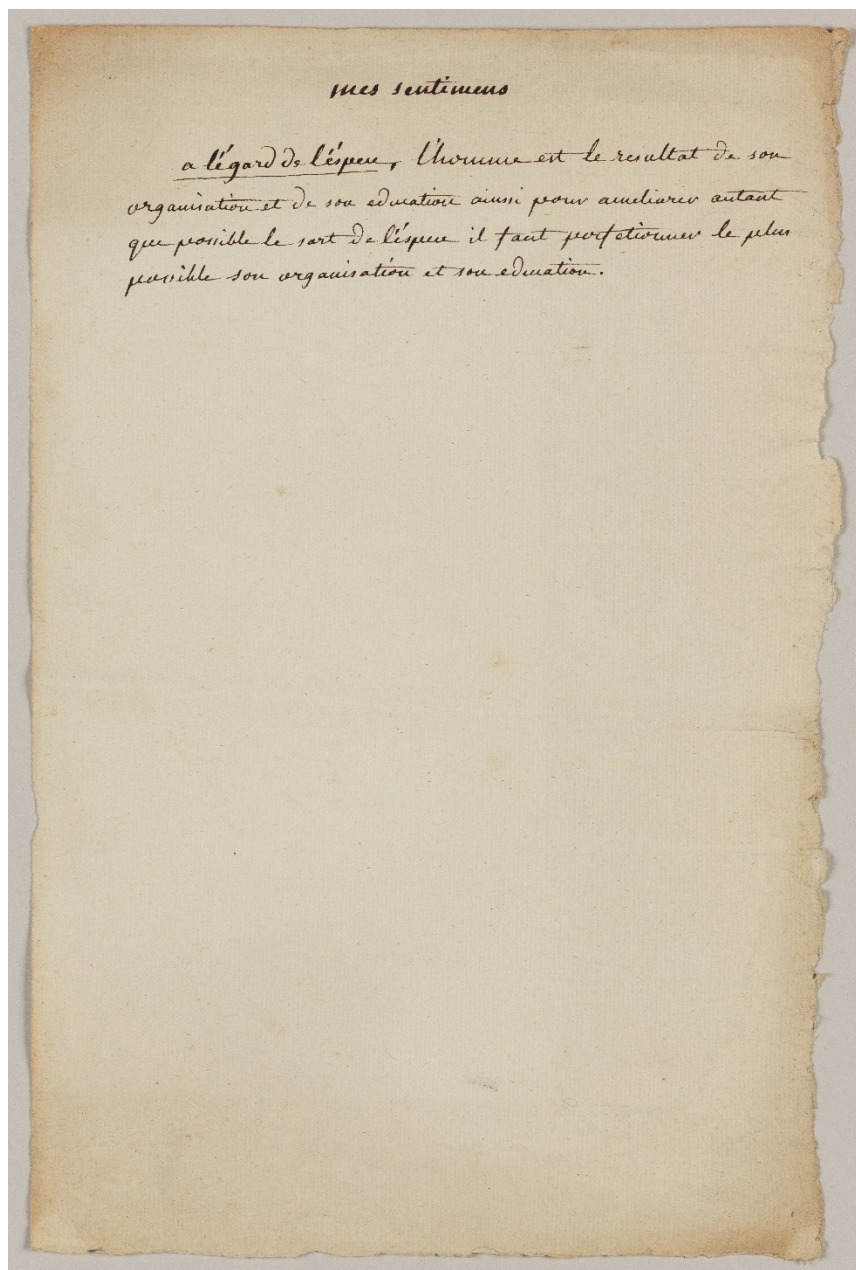 mes sentimens
a l'égard de l'éspece, l'homme est le resultat de son
organisation et de son education ainsi pour ameliorer autant
que possible le sort de l'éspece il faut perfetionner le plus
possible son organisation et son education.